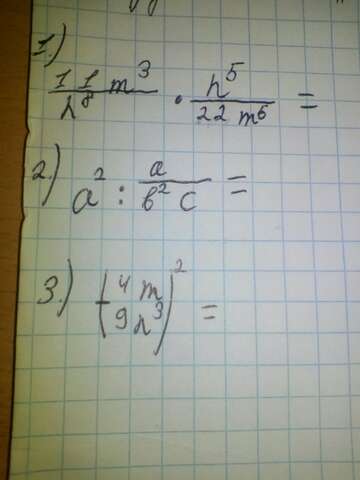 1) \frac{11 m^3}{n^8} \cdot \frac{n^5}{22 m^6} =
2) a^2 : \frac{a}{b^2 c} =
3) \left(\frac{4m}{9n^3}\right)^2 =